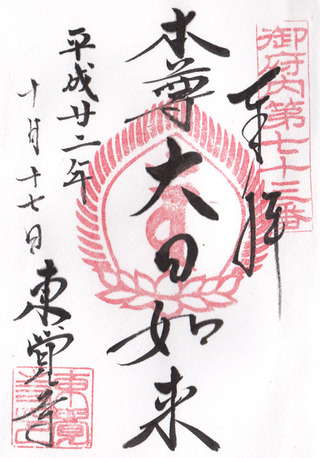 御府内第七十三番
奉拝
本尊大日如来
平成廿二年
十月十七日
東覚寺
東覺